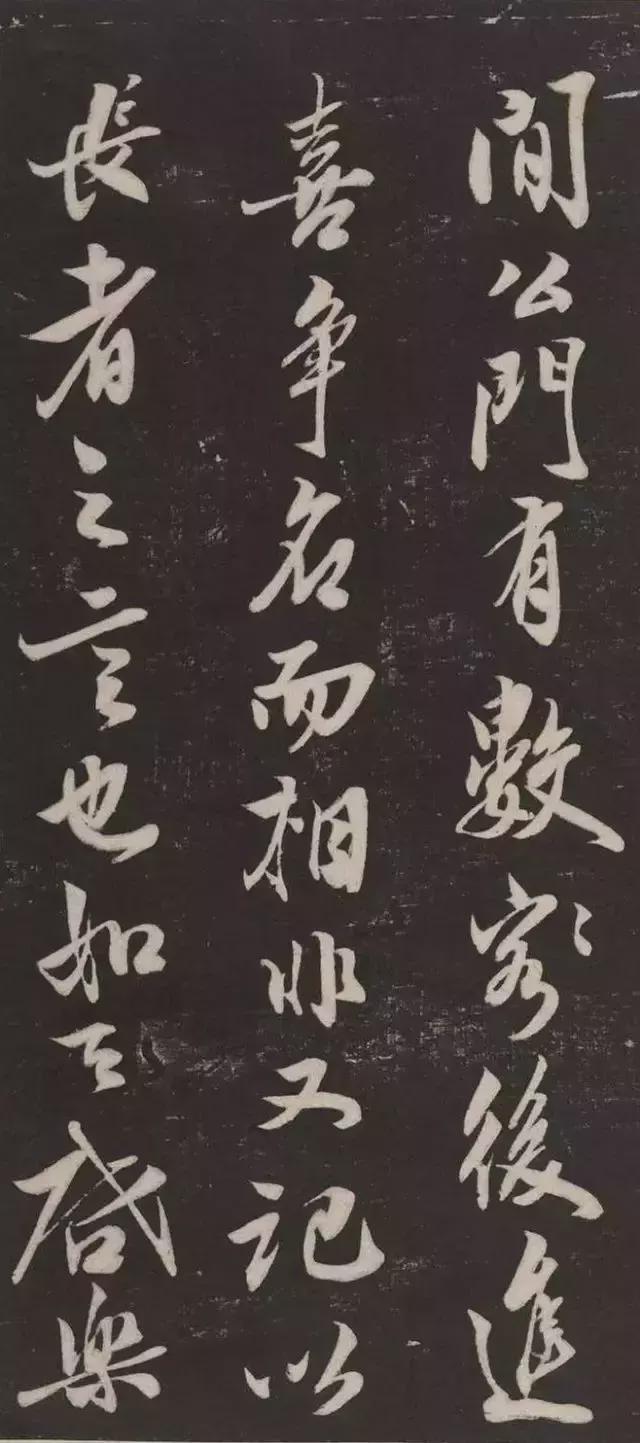 聞公門有數客〻後進
喜爭名而相非又記以
長者之言也如云咸樂